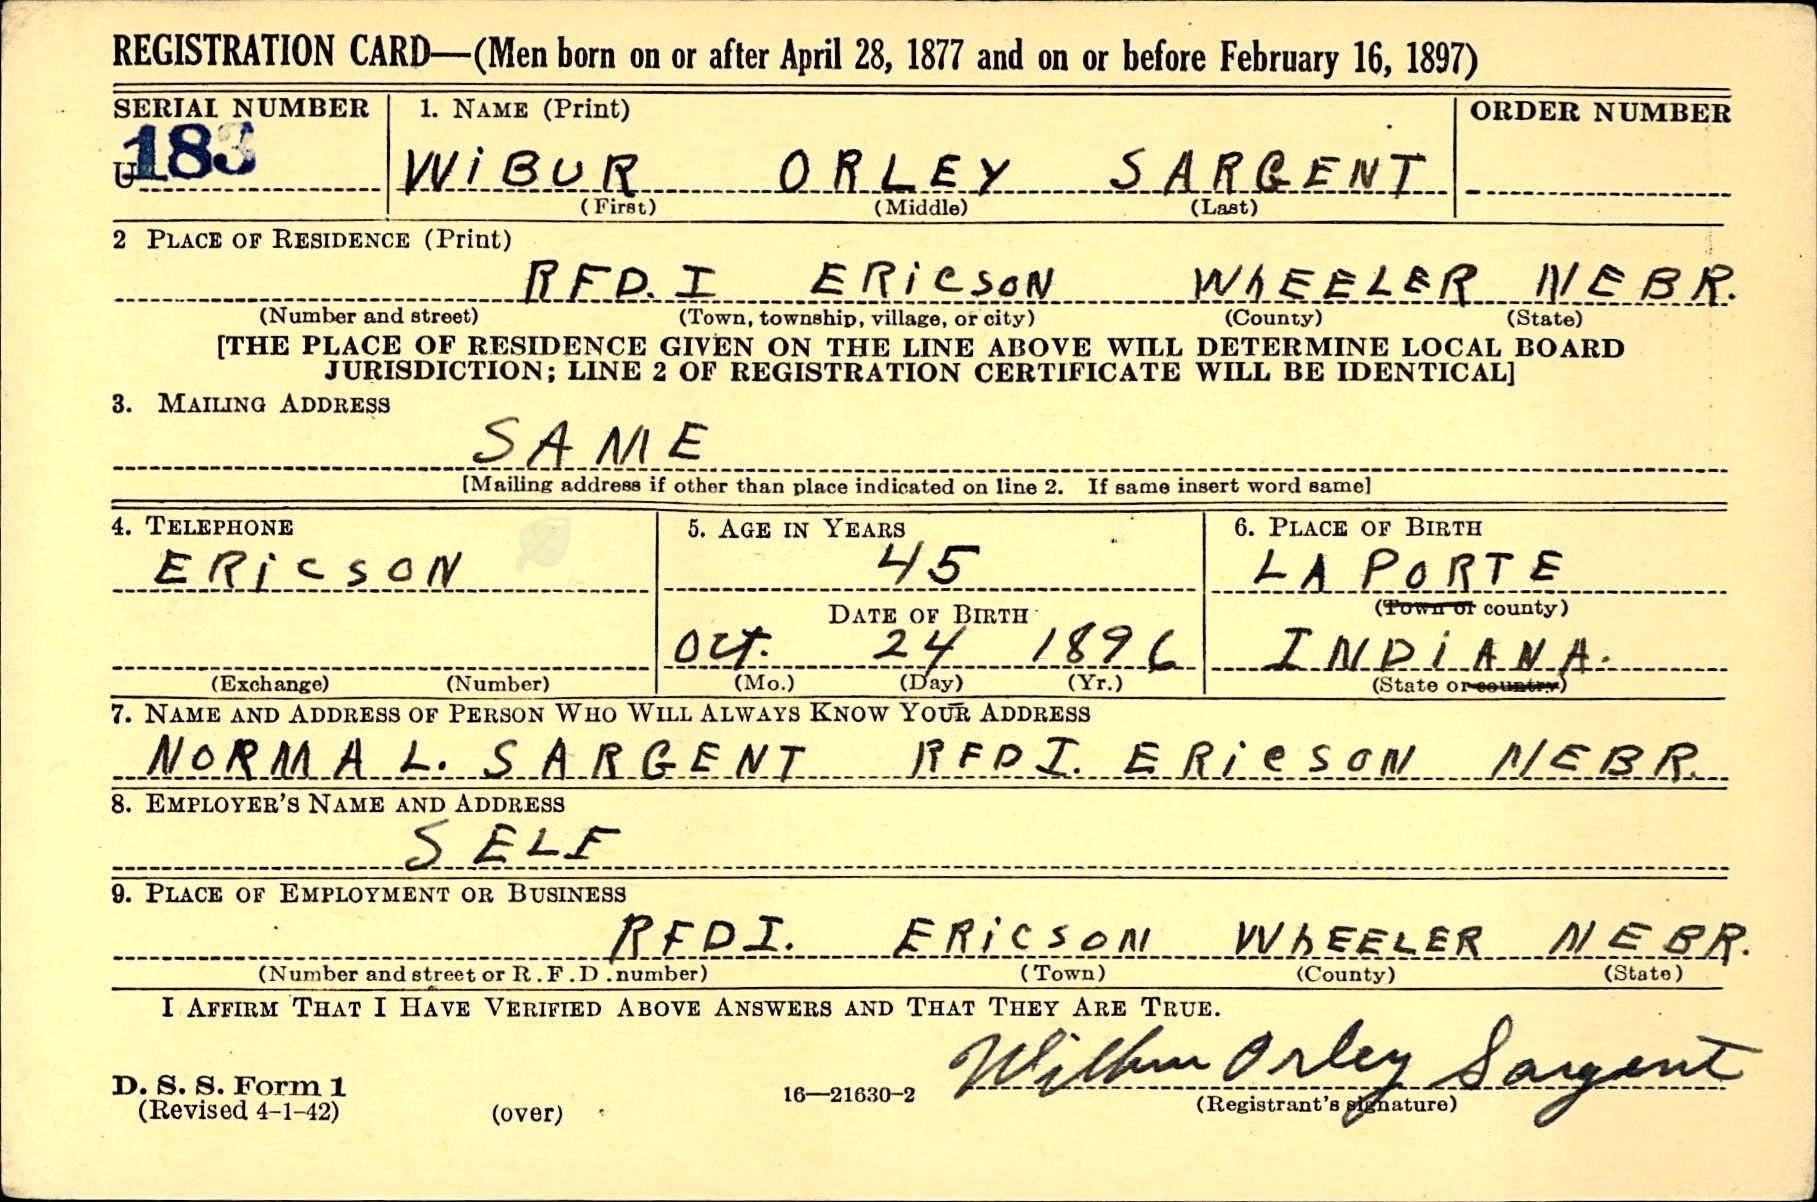 REGISTRATION CARD—(Men born on or after April 28, 1877 and on or before February 16, 1897)
SERIAL NUMBER 1. NAME (Print) ORDER NUMBER
U 183 WiBUR ORLEY SARGENT
(First) (Middle) (Last)
2 PLACE OF RESIDENCE (Print)
RFD. I ERicSON WhEELER NEBR.
(Number and street) (Town, township, village, or city) (County) (State)
[THE PLACE OF RESIDENCE GIVEN ON THE LINE ABOVE WILL DETERMINE LOCAL BOARD
JURISDICTION; LINE 2 OF REGISTRATION CERTIFICATE WILL BE IDENTICAL]
3. MAILING ADDRESS
SAME
[Mailing address if other than place indicated on line 2. If same insert word same]
4. TELEPHONE 5. AGE IN YEARS 6. PLACE OF BIRTH
ERicSON 45 LA PORTE
DATE OF BIRTH (Town or county)
Oct. 24 1896 INDiANA.
(Exchange) (Number) (Mo.) (Day) (Yr.) (State or country)
7. NAME AND ADDRESS OF PERSON WHO WILL ALWAYS KNOW YOUR ADDRESS
NORMA L. SARGENT RFD I. ERicSON NEBR.
8. EMPLOYER'S NAME AND ADDRESS
SELF
9. PLACE OF EMPLOYMENT OR BUSINESS
RFD I. ERicSON WhEELER NEBR.
(Number and street or R.F.D. number) (Town) (County) (State)
I AFFIRM THAT I HAVE VERIFIED ABOVE ANSWERS AND THAT THEY ARE TRUE.
Wilbur Orley Sargent
D. S. S. Form 1
(Revised 4-1-42) (over) 16—21630-2 (Registrant's signature)